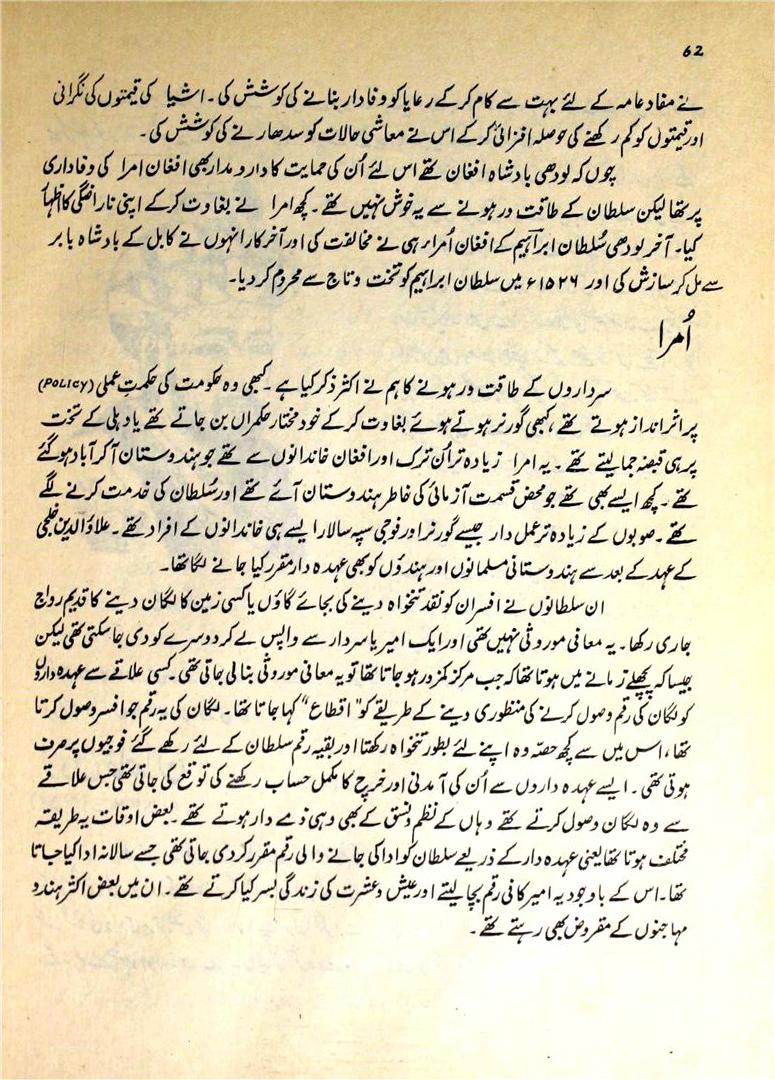 62
نے مفاد عامہ کے لئے بہت سے کام کر کے رعایا کو وفادار بنانے کی کوشش کی۔ اشیا کی قیمتوں کی نگرانی
اور قیمتوں کو کم رکھنے کی حوصلہ افزائی کر کے اس نے معاشی حالات کو سدھارنے کی کوشش کی۔
چوں کہ لودھی بادشاہ افغان تھے اس لئے اُن کی حمایت کا دارومدار بھی افغان امرا کی وفاداری
پر تھا لیکن سلطان کے طاقت ور ہونے سے یہ خوش نہیں تھے۔ کچھ امرا نے بغاوت کر کے اپنی ناراضگی کا اظہار
کیا۔ آخر لودھی سُلطان ابراہیم کے افغان اُمراء ہی نے مخالفت کی اور آخر کار انہوں نے کابل کے بادشاہ بابر
سے مل کر سازش کی اور ۱۵۲۶ء میں سلطان ابراہیم کو تخت وتاج سے محروم کر دیا۔
اُمرا
سرداروں کے طاقت ور ہونے کا ہم نے اکثر ذکر کیا ہے۔ کبھی وہ حکومت کی حکمتِ عملی (POLICY)
پر اثر انداز ہوتے تھے، کبھی گورنر ہوتے ہوئے بغاوت کر کے خود مختار حکمراں بن جاتے تھے یا دہلی کے تخت
پر ہی قبضہ جما لیتے تھے۔ یہ امرا زیادہ تر اُن ترک اور افغان خاندانوں سے تھے جو ہندوستان آ کر آباد ہو گئے
تھے۔ کچھ ایسے بھی تھے جو محض قسمت آزمائی کی خاطر ہندوستان آئے تھے اور سُلطان کی خدمت کرنے لگے
تھے۔ صوبوں کے زیادہ تر عمل دار جیسے گورنر اور فوجی سپہ سالار ایسے ہی خاندانوں کے افراد تھے۔ علاؤالدین خلجی
کے عہد کے بعد سے ہندوستانی مسلمانوں اور ہندؤں کو بھی عہدہ دار مقرر کیا جانے لگا تھا۔
ان سلطانوں نے افسران کو نقد تنخواہ دینے کی بجائے گاؤں یا کسی زمین کا لگان دینے کا قدیم رواج
جاری رکھا۔ یہ معافی موروثی نہیں تھی اور ایک امیر یا سردار سے واپس لے کر دوسرے کو دی جاسکتی تھی لیکن
جیسا کہ پچھلے زمانے میں ہوتا تھا کہ جب مرکز کمزور ہو جاتا تھا تو یہ معافی موروثی بنالی جاتی تھی۔ کسی علاقے سے عہدہ داروں
کو لگان کی رقم وصول کرنے کی منظوری دینے کے طریقے کو "اقطاع" کہا جاتا تھا۔ لگان کی یہ رقم جو افسر وصول کرتا
تھا، اس میں سے کچھ حصّہ وہ اپنے لئے بطور تنخواہ رکھتا اور بقیہ رقم سلطان کے لئے رکھے گئے فوجیوں پر صرف
ہوتی تھی۔ ایسے عہدہ داروں سے اُن کی آمدنی اور خرچ کا مکمل حساب رکھنے کی توقع کی جاتی تھی جس علاقے
سے وہ لگان وصول کرتے تھے وہاں کے نظم ونسق کے بھی وہی ذمے دار ہوتے تھے۔ بعض اوقات یہ طریقہ
مختلف ہوتا تھا یعنی عہدہ دار کے ذریعے سلطان کو ادا کی جانے والی رقم مقرر کر دی جاتی تھی جسے سالانہ ادا کیا جاتا
تھا۔ اس کے باوجود یہ امیر کافی رقم بچا لیتے اور عیش وعشرت کی زندگی بسر کیا کرتے تھے۔ ان میں بعض اکثر ہندو
مہاجنوں کے مقروض بھی رہتے تھے۔